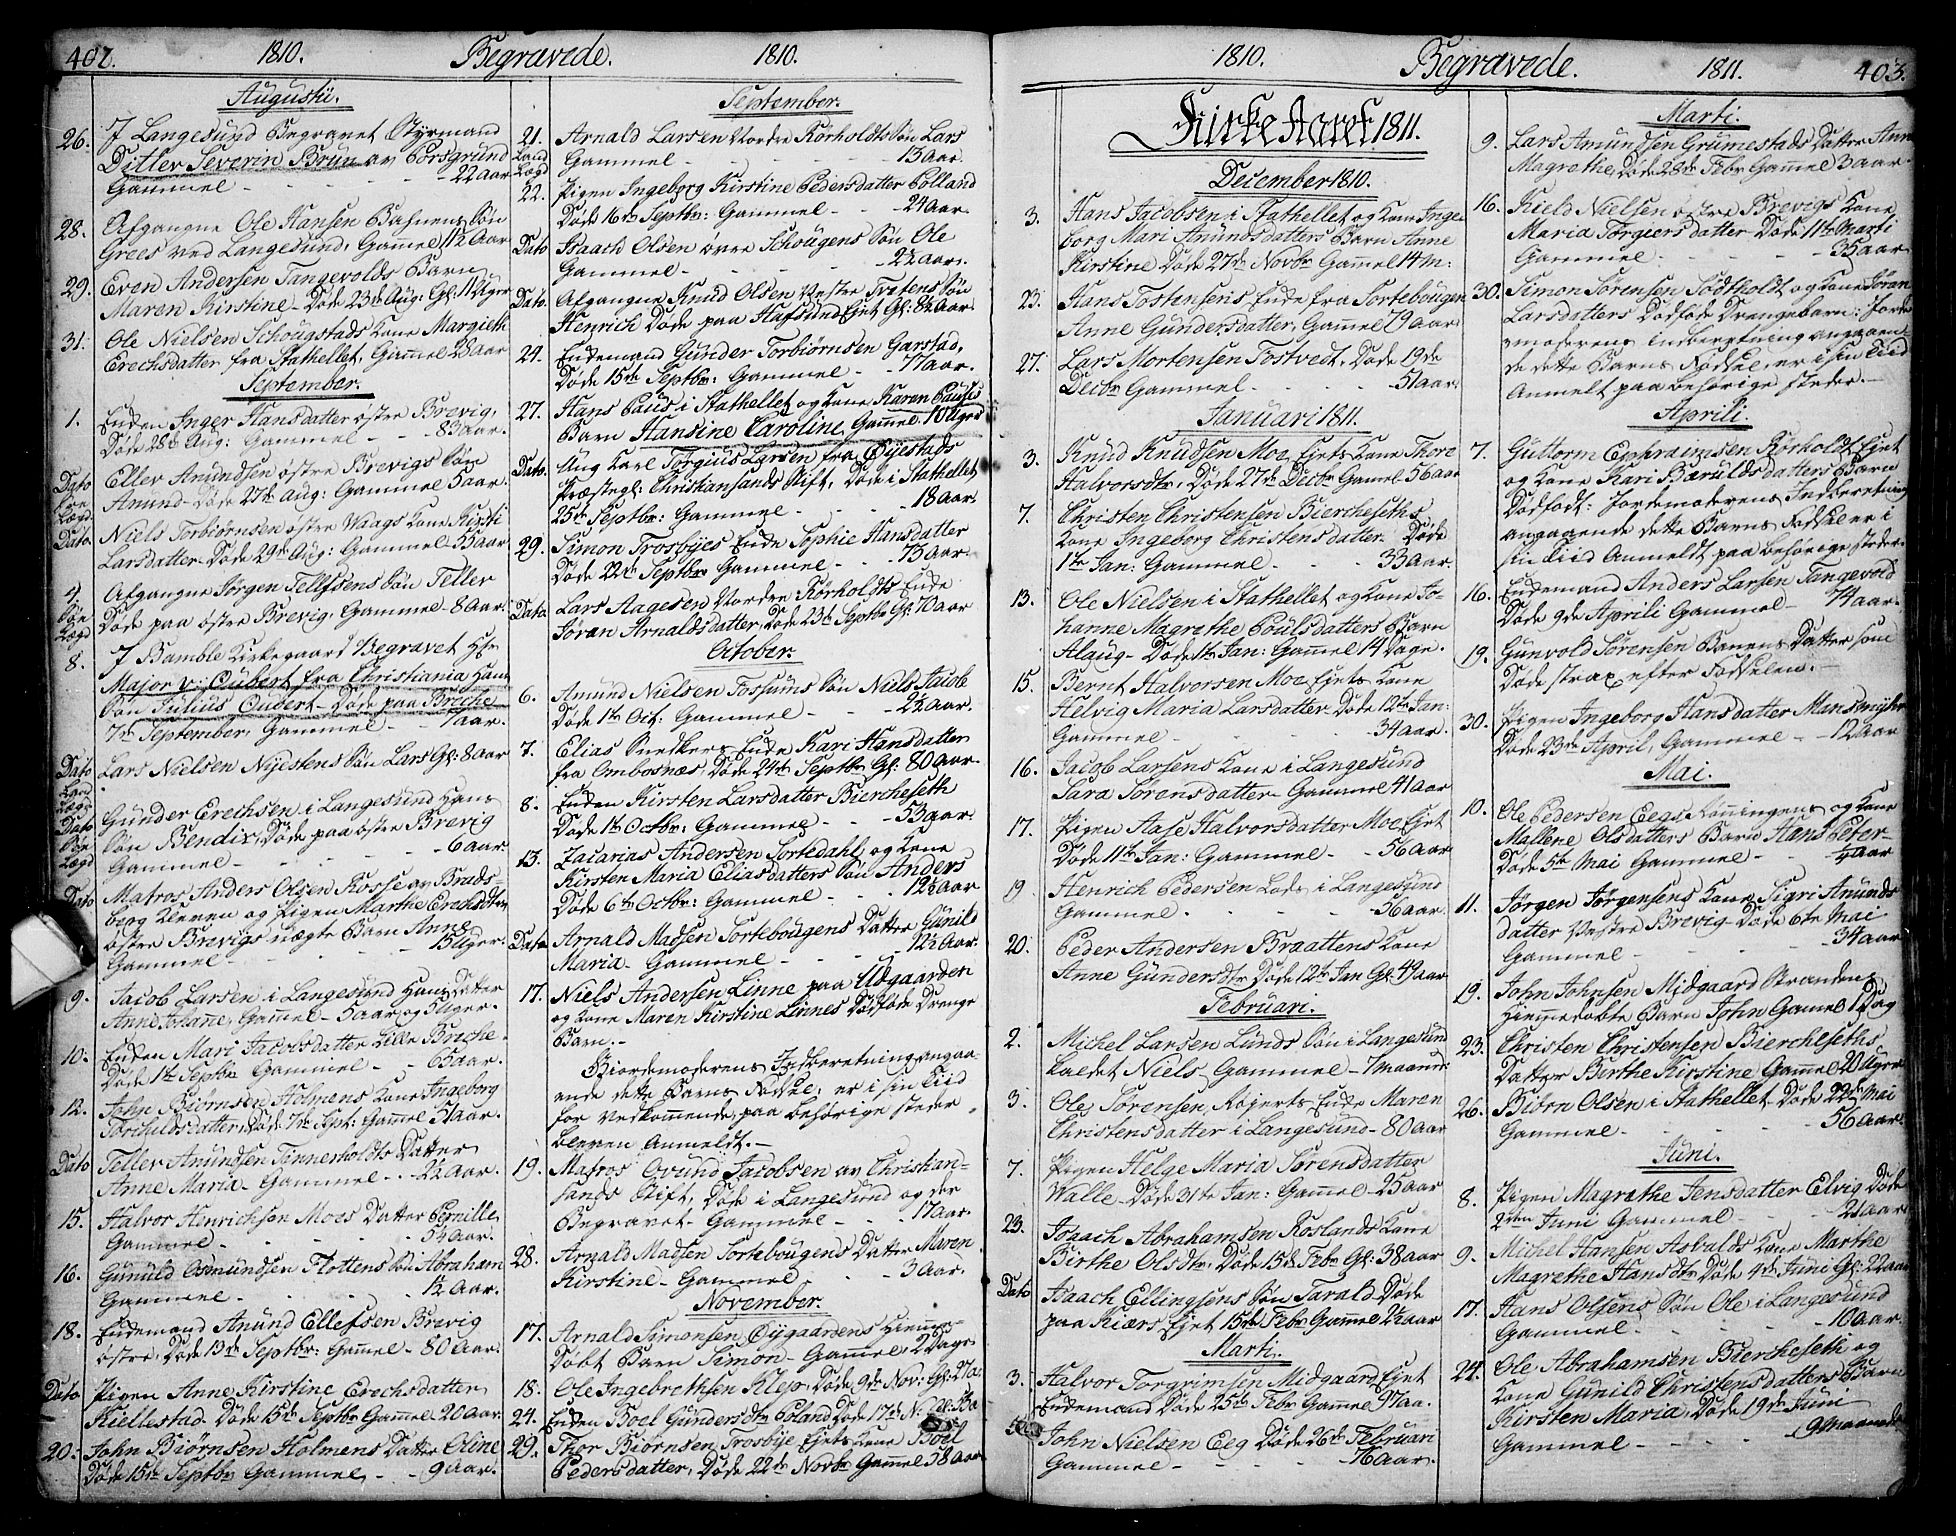 402. 1810. Begravede. 1810.
Augusti.
26. I Langesund Begravet Styrmand
Ditlev Severin Brun av Porsgrund
Gammel - - - 22 Aar
28. Afgangne Ole Hansen Bahnens Søn
Grees ved Langesund, Gamel 11½ Aar
29. Even Andersen Tangevolds Barn
Maren Kirstine - Døde 23de Aug: Gl: 11 Uger
31. Ole Nielsen Schougstads Kone Margieth
Erechsdatter fra Stathellet, Gammel 28 Aar
September.
1. Enken Inger Hansdatter østre Brevig,
Døde 28de Aug: Gammel - - 83 Aar.
Dato Eller Amundsen østre Brevigs Søn
Amund - Døde 27de Aug: Gammel 5 Aar.
Dato Niels Torbiørnsen østre Waags Kone Kirsti
Larsdatter - Døde 29de Aug: Gammel 55 Aar
4. Afgangne Jørgen Tellefsens Søn Teller
Døde paa østre Brevig, Gammel - 8 Aar.
8. I Bamble Kirkegaard Begravet Hr
Major v: Cubert fra Christiania Hans
Søn Julius Cubert - Døde paa Breche
7de September, Gammel - 7 aar.
Dato Lars Nielsen Nystens Søn Lars Gl: 8 Aar
Dato Gunder Erechsen i Langesund Hans
Søn Bendix, Døde paa østre Brevig
Gammel - - - 6 Aar
Dato Matros Anders Olsen Rosse av Brads-
berg Kleven og Pigen Marthe Erechsdtr
østre Brevigs uægte Barn Anne
Gammel - - 15 Uger.
9. Jacob Larsen i Langesund Hans Datter
Anne Johane, Gammel - 5 aar og 5 Uger.
10. Enken Mari Jacobsdatter Lille Breche
Døde 1te Septbr Gammel - - 65 Aar.
12. John Biørnsen Holmens Kone Ingeborg
Torchildsdatter, Døde 7de Sept: Gammel 51 Aar.
Dato Teller Amundsen Tinnerholdts Datter
Anne Maria - Gammel - - 2½ Aar.
15. Halvor Henrichsen Moes Datter Pernille
Gammel - - - 5¼ Aar.
16. Gunuld Osmundsen Flottens Søn Abraham
Gammel - - - 1½ Aar.
18. Enkemand Anund Ellefsen Brevig
østre, Døde 13de Septbr: Gammel - 80 Aar.
Dato Pigen Anne Kirstine Erechsdatter
Kiellestad - Døde 15de Septbr Gammel 20 Aar.
20. John Biørnsen Holmens Datter Eline
Døde 15de Septbr Gammel - - 9 Aar.
September.
21. Arnald Larsen Nordre Rørholdts Søn Lars
Gammel - - - 13 Aar.
22. Pigen Ingeborg Kirstine Pedersdatter Polland
Døde 16de Septbr: Gammel - - 24 Aar.
Dato Isaach Olsen øvre Schougens Søn Ole
Gammel - - - 2½ Aar.
Dato. Afgangne Knud Olsen Vestre Tvetens Søn
Henrich Døde paa Hafsund Eiet Gl: 8½ Aar
24. Enkemand Gunder Torbiørnsen Garstad,
Døde 15de Septbr: Gammel - - 77 Aar.
27. Hans Paus i Stathellet og Kone Karen Paus's
Barn Hansine Caroline, Gammel 10 Uger
Dato. Ung Karl Torgius Larsen fra Øyestads
Præstegl: Christiansands Stift, Døde i Stathellet
25de Septbr: Gammel - - 18 Aar.
29. Simon Trosbyes Enke Sophie Hansdatter
Døde 22de Septbr Gammel - - 73 Aar.
Dato Lars Aagesen Nordre Rørholdts Enke
Jøran Arnaldsdatter, Døde 23de Septbr Gl: 70 Aar
October.
6. Amund Nielsen Fossums Søn Niels Jacob
Døde 1te Oct: Gammel - - 2½ Aar.
7. Elias Snedkers Enke Kari Hansdatter
fra Ombosnæs Døde 24de Septbr Gl: 80 Aar.
8. Enken Kirsten Larsdatter Biercheseth
Døde 1te Octbr: Gammel - - 53 aar.
13. Zacarias Andersen Sortedahl, og Kone
Kirsten Maria Eliasdatters Søn Anders
Døde 6te Octbr: Gammel - - 12½ Aar
Dato Arnald Madsen Sortebougens Datter Gunild
Maria - Gammel - - 12½ Aar.
17. Niels Andersen Linne paa Udgaarden
og Kone Maren Kirstine Linnes Dødføde Drenge
Barn. -
Biordemoderens Indberetning angaa-
ende dette Barns Fødsel, er i sin Tiid
for Vedkommende paa behørige steder
bleven Anmeldt. -
19. Matros Ovund Jacobsen av Christian-
sands Stift, Døde i Langesund og der
Begravet - Gammel - - 17 Aar.
28. Arnald Madsen Sortebougens Datter Maren
Kirstine - Gammel - - 3 Aar.
November.
17. Arnald Simonsen Øygaardens Hieme-
Døbt Barn Simon - Gammel, 2 Dage.
18. Ole Ingebrethsen Klep, Døde 9de Nov: Gl: 27 aa
24. Enken Boel Gundersdtr Eoland Døde 17de N:
29. Thor Biørnsen Trosbye Eiets Kone Boel
Pedersdatter, Døde 22de Novbr Gammel 58 Aar
1810. Begravede. 1811. 403.
Kirke Aaret 1811.
December 1810.
3. Hans Jacobsen i Stathellet og Kone Inge-
borg Mari Anundsdatters Barn Anne
Kirstine Døde 27de Novbr Gammel 14 M:
23. Hans Tostensens Enke fra Sortebougen
Anne Gundersdatter, Gammel 79 Aar
27. Lars Mortensen Tostvedt, Døde 19de
Decbr Gammel - - - 51 Aar.
Januari 1811.
3. Knud Knudsen Moe Eiets Kone Thore
Halvorsdtr, Døde 27de Decbr Gammel 56 Aar
7. Christen Christensen Biercheseths
Kone Ingeborg Christensdatter Døde
1te Jan: Gammel - - 33 Aar.
13. Ole Nielsen i Stathellet og Kone Jo-
hanne Magrethe Poulsdatters Barn
Alaug - Døde 1te Jan: Gammel 14 Dage.
15. Bernt Halvorsen Moe Eiets Kone
Helvig Maria Larsdatter Døde 12te Jan:
Gammel - - - 34 Aar.
16. Jacob Larsens Kone i Langesund
Sara Sørensdatter Gammel 41 Aar
17. Pigen Aase Halvorsdatter Moe Eiet
Døde 11te Jan: Gammel - - 56 Aar
19 Henrich Pedersen Lods i Langesund
Gammel - - - 56 aar.
20. Peder Andersen Braattens Kone
Anne Gundersdtr Døde 12te Jan Gl: 49 Aar
Februari.
2. Michel Larsen Lunds Søn i Langesund
kaldet Niels Gammel - 7 maaneder
3. Ole Sørensen, Rojerts Enke Maren
Christensdatter i Langesund - 80 Aar
7. Pigen Helge Maria Sørensdatter
Walle - Døde 31te Jan: Gammel - 25 Aar
23. Isaach Abrahamsen Roslands Kone
Birthe Olsdtr, Døde 15de Febr Gl: 38 Aar
Dato Isaach Ellingsens Søn Tarald Døde
paa Kiærs Eiet 15de Febr Gammel 2½ Aar
Marti.
3. Halvor Torgrimsen Midgaard Eiet
Enkemand Døde 25de Febr Gammel 97 Aa.
John Nielsen Eeg Døde 26de Februari
Gammel - - - 76 Aar.
Marti.
9. Lars Amundsen Grumestads Datter Anne
Magrethe, Døde 28de Febr Gammel 3 Aar.
16. Kield Nielsen østre Brevigs Kone
Maria Torgiersdatter Døde 11te Marti
Gammel - - - 35 Aar
30. Simon Sørensen Sødtholdt og Kone Jøran
Larsdatters Dødføde Drengebarn: Jorde-
moderens Indberetning angaaen-
de dette Barns Fødsel, er i sin Tiid
Anmelt paa behørige steder. -
Aprili.
7. Guttorm Ephraimsen Rørholdt Eiet
og Kone Kari Baruldsdatters Barn
Dødfødt: Jordemoderens Indberetning
angaaende dette Barns Fødsel er i
sin Tiid Anmeldt paa behørige steder
16. Enkemand Anders Larsen Tangevold
Døde 9de Aprili Gammel - 74 Aar.
19. Gunvold Sørensen Banens Datter som
Døde strax efter Fødselen. -
30. Pigen Ingeborg Hansdatter Mansmyhr
Døde 23de April, Gammel - - 12 Aar
Mai.
10. Ole Pedersen Eegs Kaaningens og Kone
Mallene Olsdatters Barn Hans Peter -
Døde 5te Mai Gammel - - ¼ Aar
11. Jørgen Jørgensens Kone Sigri Anunds
datter Vestre Brevig - Døde 6te Mai
Gammel - - - 34 Aar
19. John Johnsen Midgaard Stranden
Hiemmedøbte Barn John Gammel 1 Dag
23. Christen Christensen Biercheseths
Datter Berthe Kirstine Gammel 20 Uger
26. Biørn Olsen i Stathellet Døde 22de Mai
Gammel - - - 56 Aar.
Juni.
8. Pigen Magrethe Jensdatter Elvig Døde
2den Juni Gammel - - 21 Aar.
9. Michel Hansen Asvalds Kone Marthe
Magrethe Hansdtr Døde 4de Juni Gl: 22 aar
17. Hans Olsens Søn Ole i Langesund
Gammel - - - 10 Aar
24. Ole Abrahamsen Biercheseth og
Kone Gunild Christensdatters Barn
Kirsten Maria, Døde 19de Juni
Gammel - - - 9 Maaneder